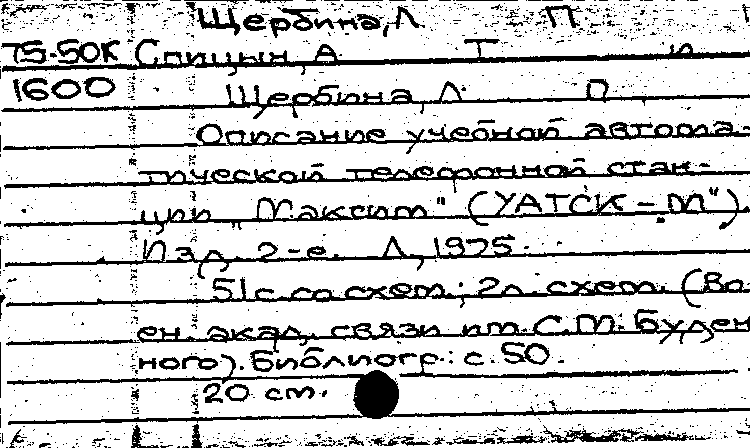 Щербина, Л П
75-50К Спицын, А Т и
1600 Щербина, Л. П
Описание учебной автома-
тической телефонной стан-
ции „Максим" (УАТСК-М").
Изд. 2-е. Л., 1975.
51 с. со схем.; 2 л. схем. (Во
ен. акад. связи им. С.М. Буден
ного). Библиогр.: с. 50.
20 см.